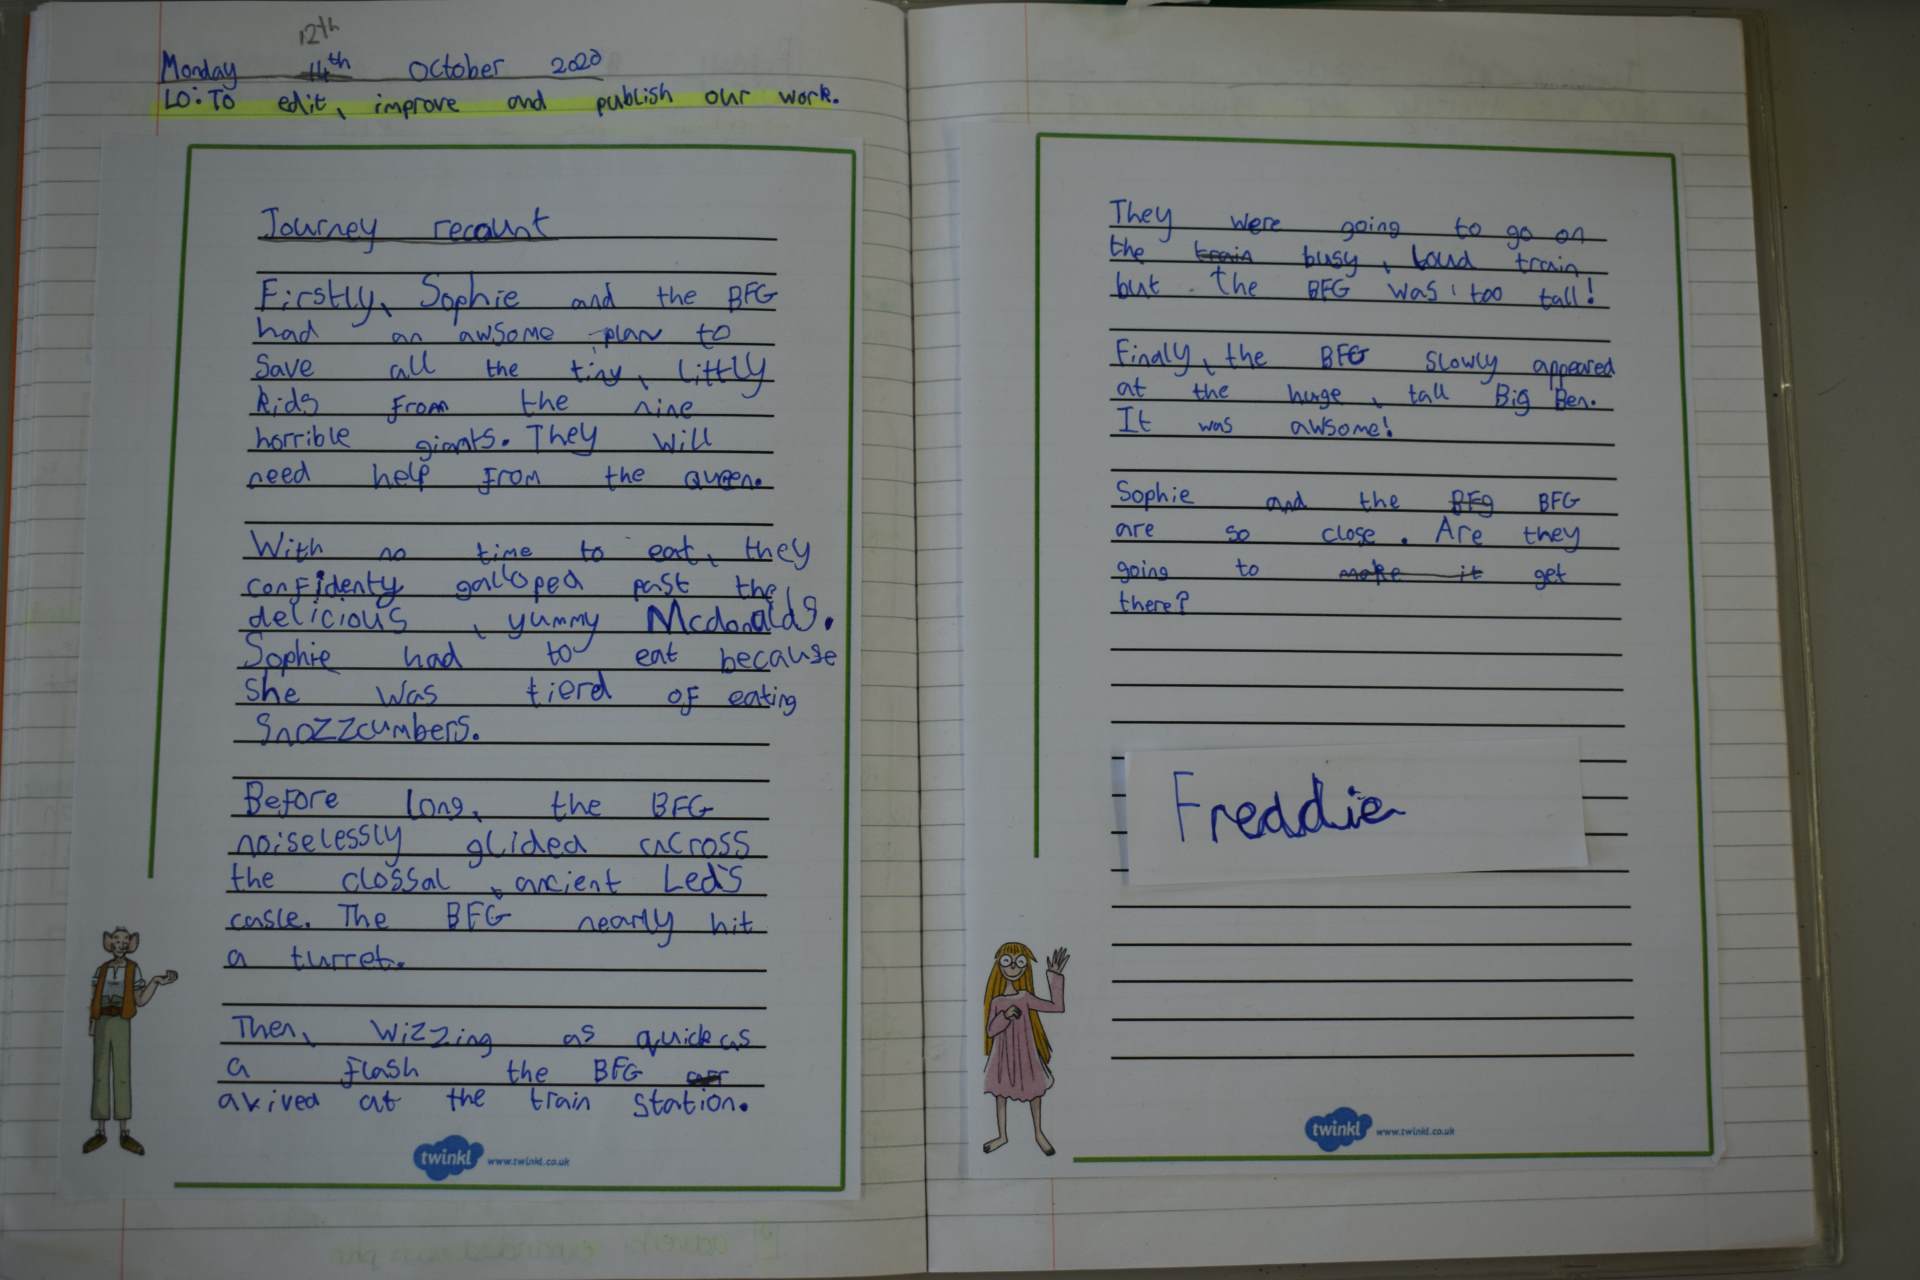 12th
Monday 14th October 2020
LO: To edit, improve and publish our work.
Journey recount
Firstly, Sophie and the BFG
had an awsome plan to
save all the tiny, littly
kids from the nine
horrible giants. They will
need help from the queen.
With no time to eat, they
confidenty galloped past the
delicious, yummy Mcdonalds.
Sophie had to eat because
she was tierd of eating
snozzcumbers.
Before long, the BFG
noiselessly glided across
the clossal, ancient Led's
casle. The BFG nearly hit
a turret.
Then, wizzing as quick as
a flash the BFG arr
arived at the train station.
twinkl www.twinkl.co.uk
They were going to go on
the train busy, loud train
but the BFG was too tall!
Finally, the BFG slowly appeared
at the huge, tall Big Ben.
It was awsome!
Sophie and the BFg BFG
are so close. Are they
going to make it get
there?
Freddie
twinkl www.twinkl.co.uk